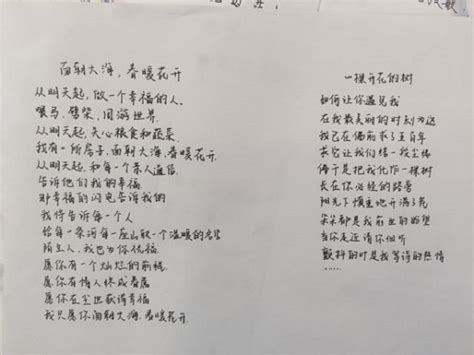 面朝大海，春暖花开
从明天起，做一个幸福的人，
喂马、劈柴，周游世界
从明天起，关心粮食和蔬菜
我有一所房子，面朝大海，春暖花开
从明天起，和每一个亲人通信
告诉他们我的幸福
那幸福的闪电告诉我的
我将告诉每一个人
给每一条河每一座山取一个温暖的名字
陌生人，我也为你祝福
愿你有一个灿烂的前程
愿你有情人终成眷属
愿你在尘世获得幸福
我只愿面朝大海，春暖花开
一棵开花的树
如何让你遇见我
在我最美丽的时刻为这
我已在佛前求了五百年
求它让我们结一段尘缘
佛于是把我化作一棵树
长在你必经的路旁
阳光下慎重地开满了花
朵朵都是我前世的盼望
当你走近请你细听
颤抖的叶是我等待的热情
……